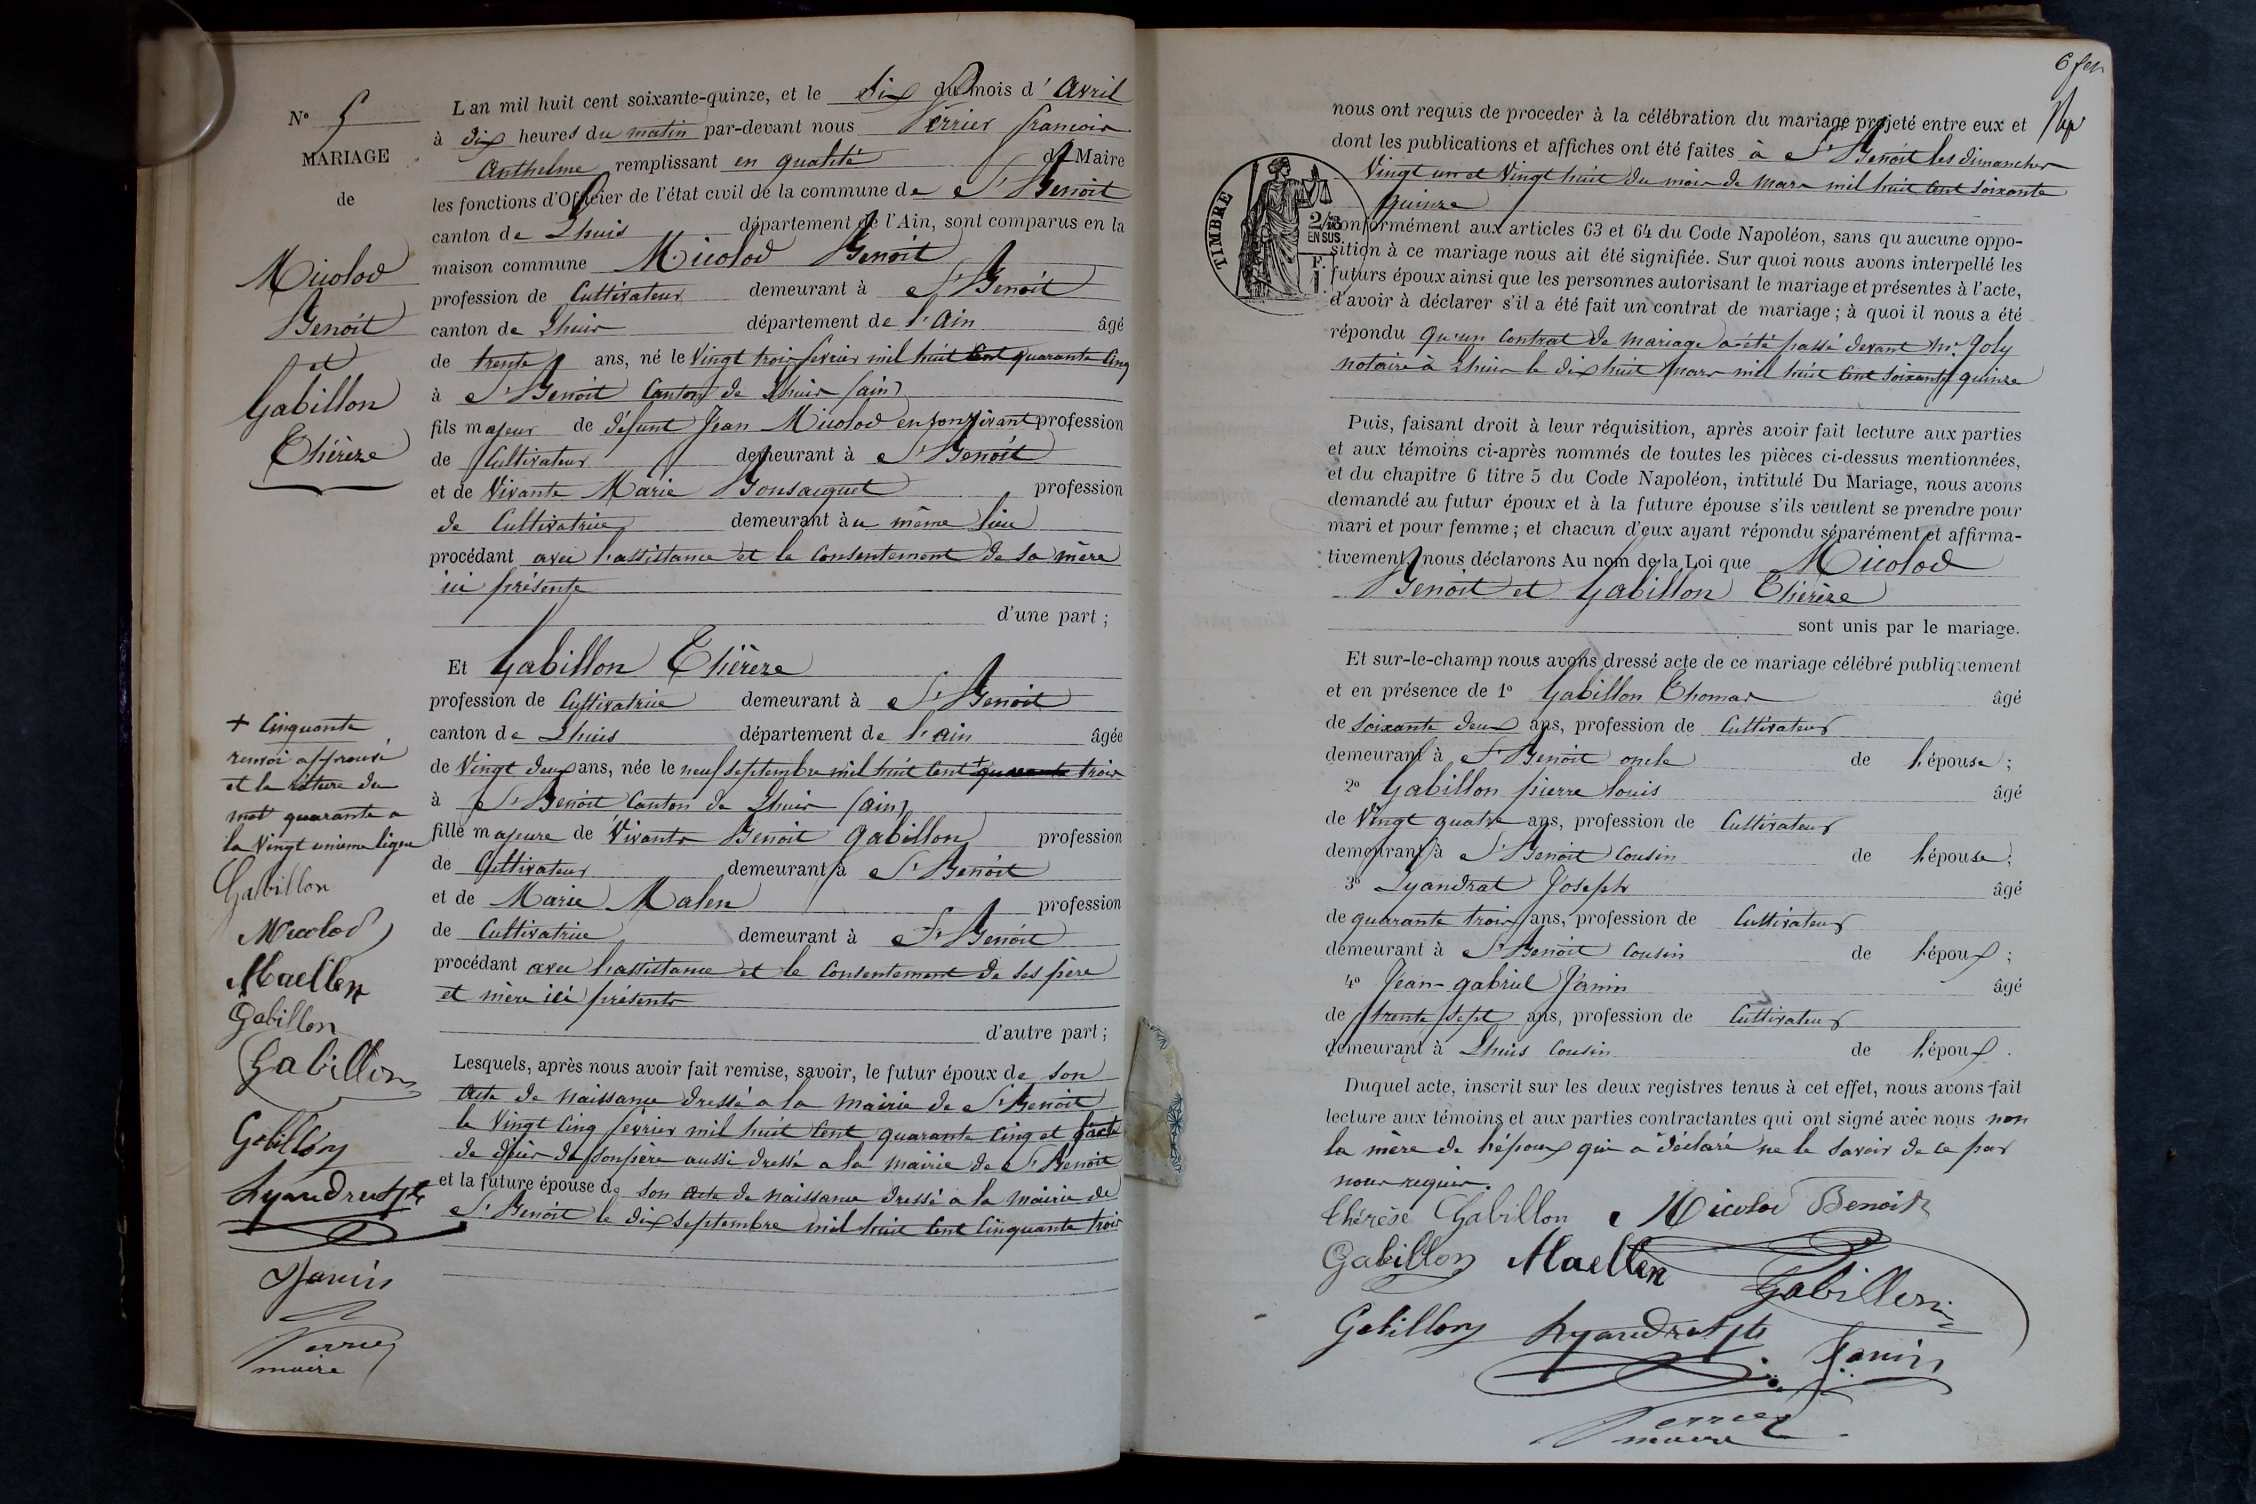 N° 5
MARIAGE
de
Micolod
Benoit
et
Gabillon
Thérèze
L'an mil huit cent soixante-quinze, et le dix du mois d'Avril
à dix heures du matin par-devant nous Verrier françois
Anthelme remplissant en qualité de Maire
les fonctions d'Officier de l'état civil de la commune de St Benoit
canton de Lhuis département de l'Ain, sont comparus en la
maison commune Micolod Benoit
profession de Cultivateur demeurant à St Benoit
canton de Lhuis département de l'Ain âgé
de trente ans, né le Vingt trois fevrier mil huit Cent quarante Cinq
à St Benoit Canton de Lhuis (ain)
fils majeur de défunt Jean Micolod en son vivant profession
de Cultivateur demeurant à St Benoit
et de Vivante Marie Bonsacquet profession
de Cultivatrice demeurant àu même lieu
procédant avec l'assistance et le Consentement de sa mère
ici présente
d'une part ;
Et Gabillon Thérèze
profession de Cultivatrice demeurant à St Benoit
canton de Lhuis département de l'ain âgée
de Vingt deux ans, née le neuf septembre mil huit Cent + quarante trois
à St Benoit Canton de Lhuis (ain)
fille majeure de Vivants Benoit Gabillon profession
de Cultivateur demeurant à St Benoit
et de Marie Malen profession
de Cultivatrice demeurant à St Benoit
procédant avec l'assistance et le Consentement de ses père
et mère ici présents
d'autre part ;
Lesquels, après nous avoir fait remise, savoir, le futur époux de son
acte de naissance dressé a la mairie de St Benoit
le Vingt Cinq fevrier mil huit Cent quarante Cinq et l'acte
de décès de son père aussi dressé a la mairie de St Benoit
et la future épouse de son acte de naissance dressé a la mairie de
St Benoit le dix septembre mil huit Cent Cinquante trois
+ Cinquante
renvoi approuvé
et la rature du
mot quarante a
la Vingt unieme ligne
Gabillon
Micolod
Maellen
Gabillon
Gabillon
Gabillon
Lyaudrat
Janin
Verrier
maire
6 fev
nous ont requis de proceder à la célébration du mariage projeté entre eux et
dont les publications et affiches ont été faites à St Benoit les dimanches
Vingt un et Vingt huit du mois de mars mil huit Cent soixante
quinze
TIMBRE
2/10 EN SUS.
conformément aux articles 63 et 64 du Code Napoléon, sans qu'aucune oppo-
sition à ce mariage nous ait été signifiée. Sur quoi nous avons interpellé les
futurs époux ainsi que les personnes autorisant le mariage et présentes à l'acte,
d'avoir à déclarer s'il a été fait un contrat de mariage ; à quoi il nous a été
répondu Qu'un Contrat de mariage a été passé devant Mr. Joly
notaire à Lhuis le dix huit mars mil huit Cent soixante quinze
Puis, faisant droit à leur réquisition, après avoir fait lecture aux parties
et aux témoins ci-après nommés de toutes les pièces ci-dessus mentionnées,
et du chapitre 6 titre 5 du Code Napoléon, intitulé Du Mariage, nous avons
demandé au futur époux et à la future épouse s'ils veulent se prendre pour
mari et pour femme ; et chacun d'eux ayant répondu séparément et affirma-
tivement, nous déclarons Au nom de la Loi que Micolod
Benoit et Gabillon Thérèze
sont unis par le mariage.
Et sur-le-champ nous avons dressé acte de ce mariage célébré publiquement
et en présence de 1° Gabillon Thomas âgé
de soixante deux ans, profession de Cultivateur
demeurant à St Benoit oncle de l'épouse ;
2° Gabillon pierre louis âgé
de Vingt quatre ans, profession de Cultivateur
demeurant à St Benoit Cousin de l'épouse ;
3° Lyandrat Joseph âgé
de quarante trois ans, profession de Cultivateur
demeurant à St Benoit Cousin de l'époux ;
4° Jean-gabriel Janin âgé
de trente sept ans, profession de Cultivateur
demeurant à Lhuis Cousin de l'époux.
Duquel acte, inscrit sur les deux registres tenus à cet effet, nous avons fait
lecture aux témoins et aux parties contractantes qui ont signé avec nous non
la mère de l'époux qui a déclaré ne le savoir de ce par
nous requise.
thérèse Gabillon Micolod Benoit
Gabillon Maellen Gabillon
Gabillon Lyaudrat Janin
Verrier
maire